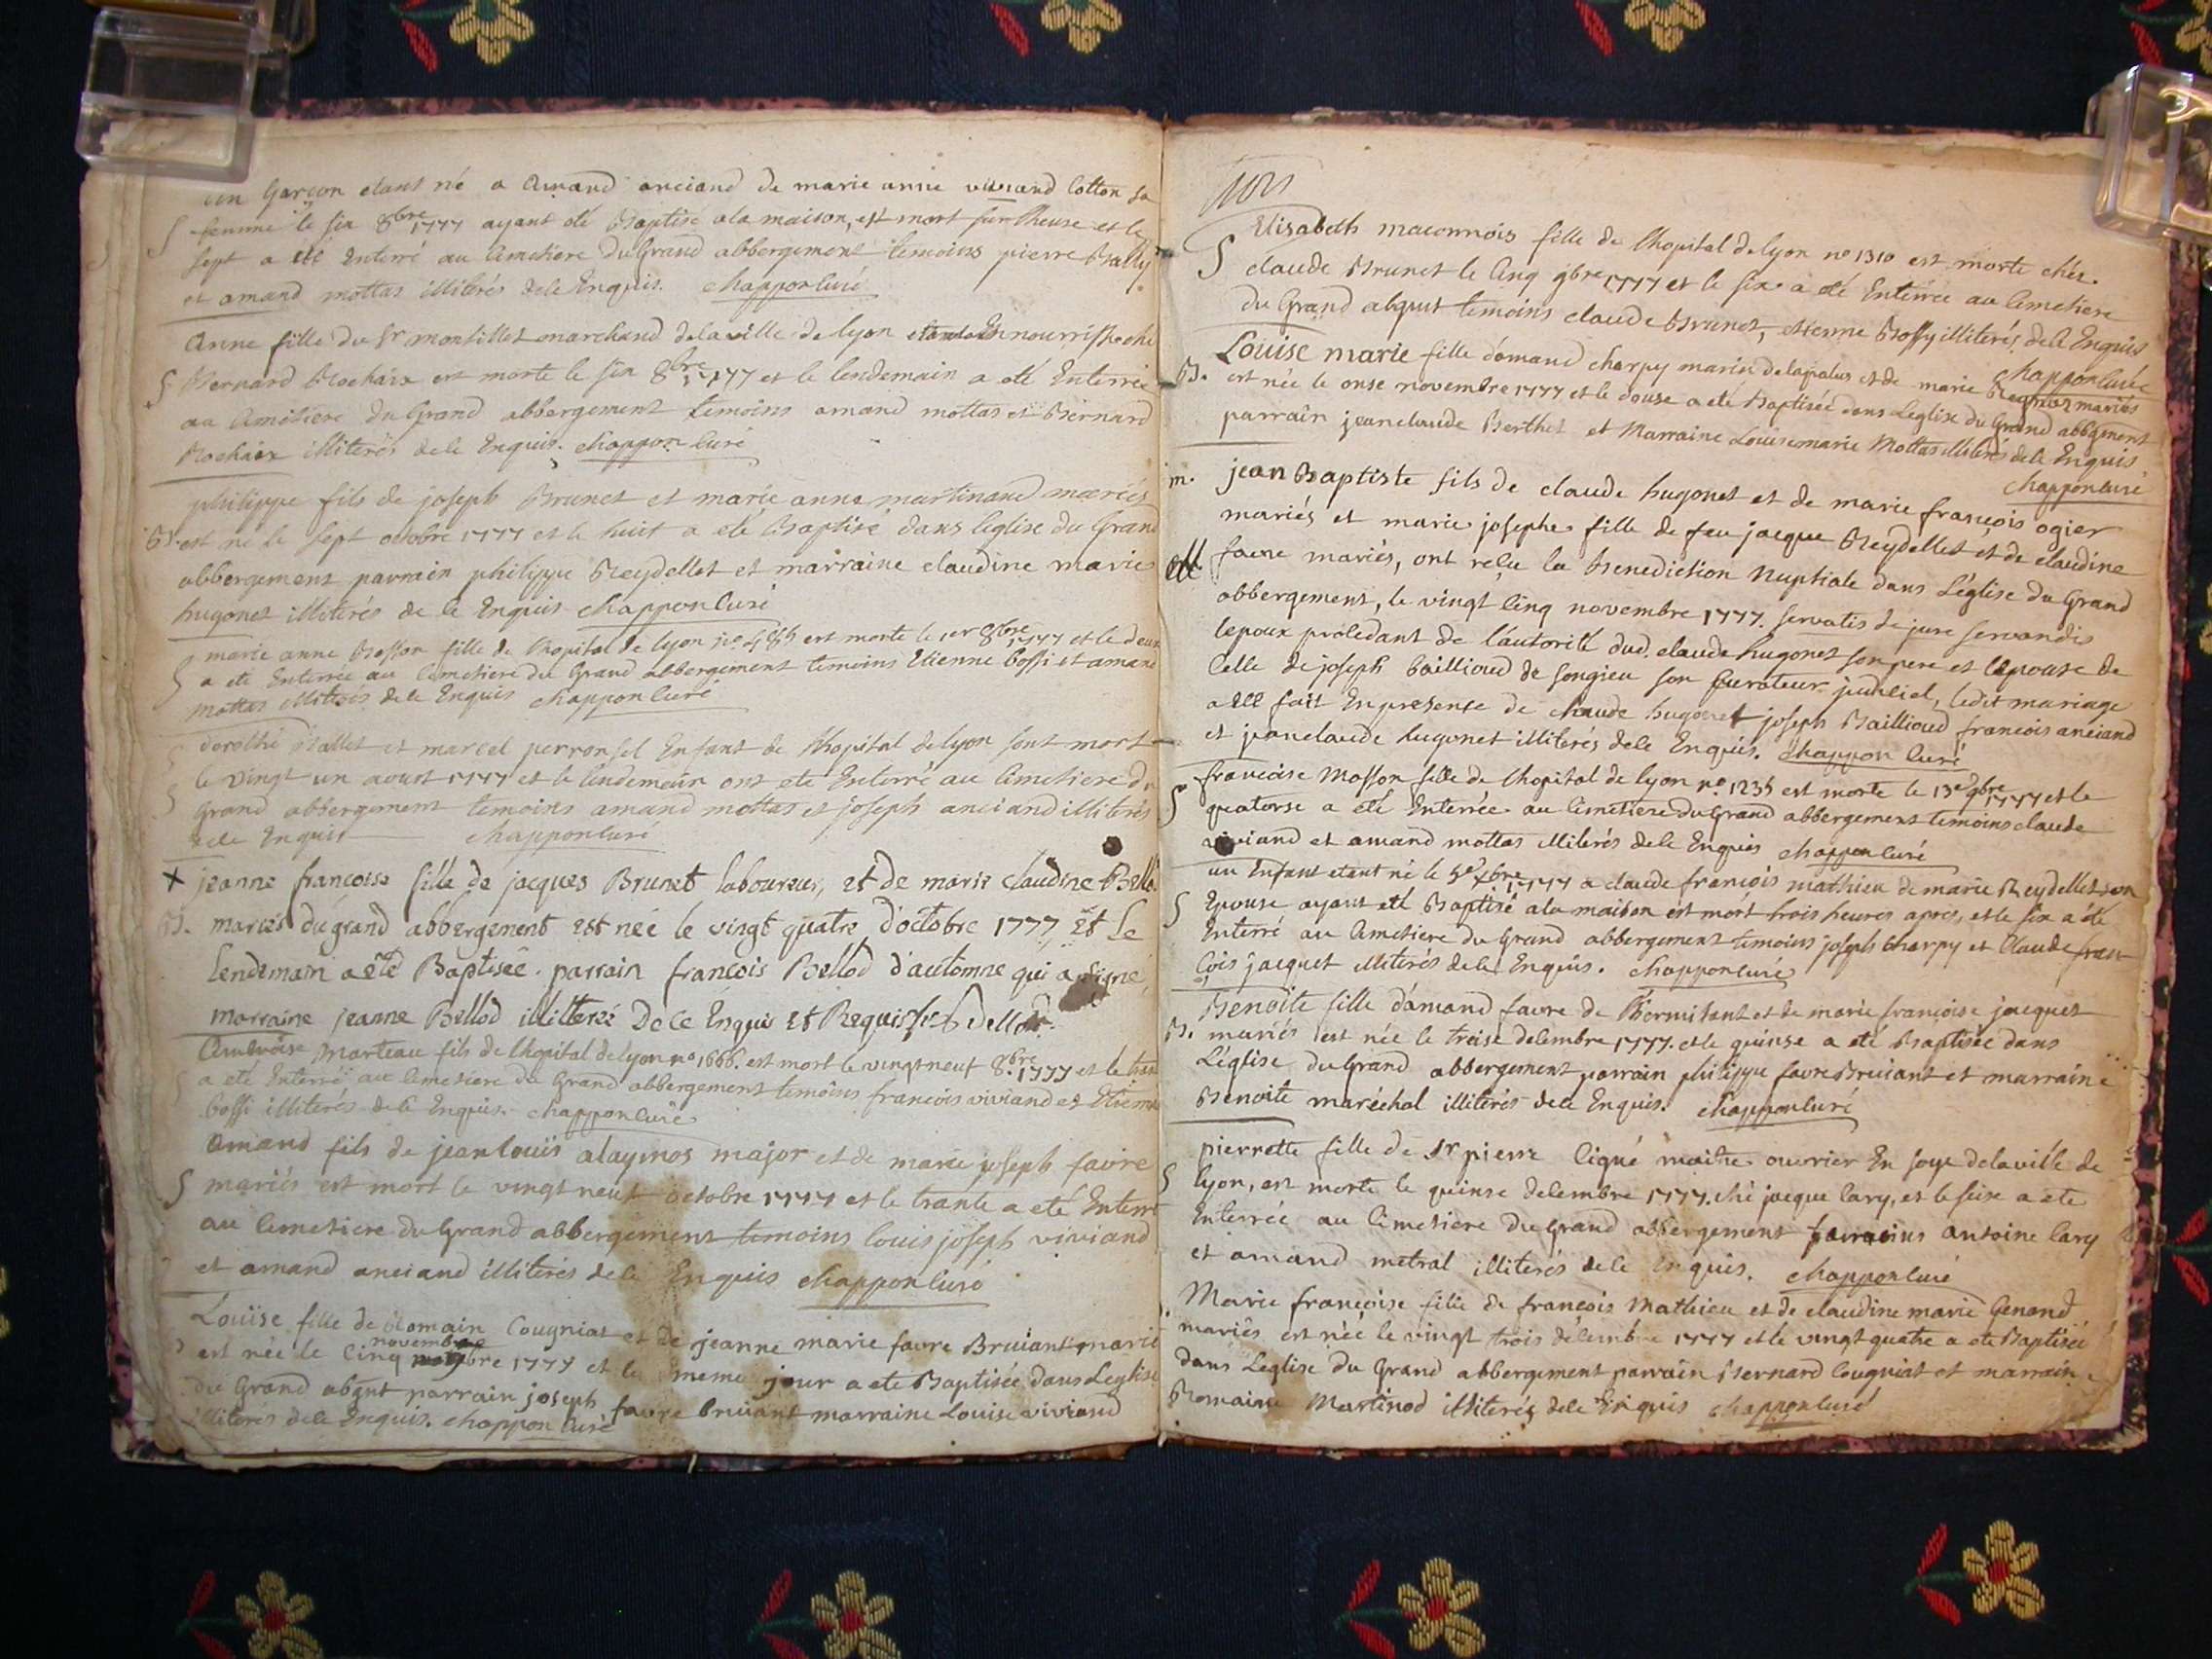 un Garçon etant né a Amand anciand de marie anne viviand Cotton sa
S femme le six 8bre 1777 ayant eté Baptisé ala maison, est mort sur lheure et le
sept a eté Enterré au Cimetiere Du Grand abbergement temoins pierre Bally
et amand mottas illiterés dele Enquis. Chappon Curé
Anne fille du Sr montillet marchand dela ville de lyon etant En nourrisse ché
S Bernard Rochaix est morte le six 8bre 1777 et le lendemain a eté Enterrée
au Cimetiere du Grand abbergement temoins amand mottas et Bernard
Rochaix illiterés dele Enquis. chappon Curé
philippe fils de joseph Brunet et marie anne martinand mariés
B. est né le sept octobre 1777 et le huit a eté Baptisé dans l'eglise du Grand
abbergement parrain philippe Reydellet et marraine claudine marie
hugonet illiterés de le Enquis chappon Curé
marie anne Basson fille de lhopital de lyon no 485 est morte le 1er 8bre 1777 et le deux
S a eté Enterrée au Cimetiere du Grand abbergement temoins Etienne bossi et amand
mottas illiterés dele Enquis chappon Curé
S dorothé Ballet et marcel perronsel Enfant de lhopital de lyon sont mort
S le vingt un aoust 1777 et le lendemain ont eté Enterré au Cimetiere du
Grand abbergement temoins amand mottas et joseph anciand illiterés
dele Enquis chappon Curé
x jeanne francoise fille de jacques Brunet laboureur, et de marie claudine Bellod
B. mariés du grand abbergement est née le vingt quatre d'octobre 1777 et Le
Lendemain a eté Baptisée. parrain françois Bellod d'automne qui a signé,
marraine jeanne Bellod illitterée De ce Enquis et Requis f Bellod
Ambroise Marteau fils de lhopital de lyon no 1666. est mort le vingt neuf 8bre 1777 et le trante
S a eté Enterré au Cimetiere du Grand abbergement temoins francois viviand et Etienne
bossi illiterés dele Enquis. chappon Curé
Amand fils de jean louis alaymos major et de marie joseph favre
S mariés est mort le vingt neuf octobre 1777 et le trante a eté Enterré
au Cimetiere du Grand abbergement temoins louis joseph viviand
et amand anciand illiterés dele Enquis chappon Curé
Louise fille de Romain Cougniat et de jeanne marie favre Bruiant mariés
novembre
est née le Cinq 1777 et le meme jour a eté Baptisée dans Leglise
du Grand abgnt parrain joseph favre bruiant marraine Louise viviand
illiterés dele Enquis. chappon Curé
Elisabeth maconnois fille de lhopital de lyon no 1310 est morte chéz
S claude Brunet le Cinq 9bre 1777 et le six a eté Enterrée au Cimetiere
du Grand abgmt temoins claude Brunet, etienne Bossy illiterés dele Enquis
chappon Curé
Louise marie fille d'amand charpy marin delapalus et de marie mariés
B. est née le onse novembre 1777 et le douse a eté Baptisée dans Leglise du Grand abbgement
parrain jean claude Berthet et Marraine Louise marie Mottas illiterés dele Enquis
chappon Curé
m. jean Baptiste fils de claude hugonet et de marie françois ogier
mariés et marie josephe fille de feu jacque Reydellet et de claudine
favre mariés, ont reçu la Benediction Nuptiale dans L'église du Grand
abbergement, le vingt Cinq novembre 1777. servatis de jure servandis
lepoux procedant de l'autorité dud. claude hugonet son pere et lepouse de
Celle de joseph Baillioud de songieu son Curateur judiciel, ledit mariage
a eté fait En presence de claude hugonet joseph Baillioud francois anciand
et jean claude hugonet illiterés dele Enquis. chappon Curé
francoise Masson fille de lhopital de lyon no. 1235 est morte le 13e 9bre 1777 et le
S quatorse a eté Enterrée au Cimetiere du Grand abbergement temoins claude
viviand et amand mottas illiterés dele Enquis chappon Curé
un Enfant etant né le 5e Xbre 1777 a claude francois mathieu de marie Reydellet son
S Epouse ayant eté Baptisé ala maison est mort trois heures aprés, et le six a eté
Enterré au Cimetiere du Grand abbergement temoins joseph Charpy et Claude fran
Cois jacquet illiterés dele Enquis. chappon Curé
Benoite fille d'amand favre de et de marie françoise jacquet
B. mariés est née le treise decembre 1777. et le quinse a eté Baptisée dans
L'église du Grand abbergement parrain philippe favre Bruiant et marraine
Benoite maréchal illiterés dele Enquis. chappon Curé
pierrette fille de Sr pierre Ciqué maitre ouvrier En soye dela ville de
S lyon, est morte le quinse decembre 1777. ché jacque Cary, et le seise a eté
Enterrée au Cimetiere du Grand abbergement antoine Cary
et amand metral illiterés dele Enquis. chappon Curé
Marie françoise fille de francois Mathieu et de claudine marie Genand
mariés est née le vingt trois decembre 1777 et le vingt quatre a eté Baptisée
dans Leglise du Grand abbergement parrain Bernard Cougniat et marraine
Romaine Martinod illiterés dele Enquis chappon Curé